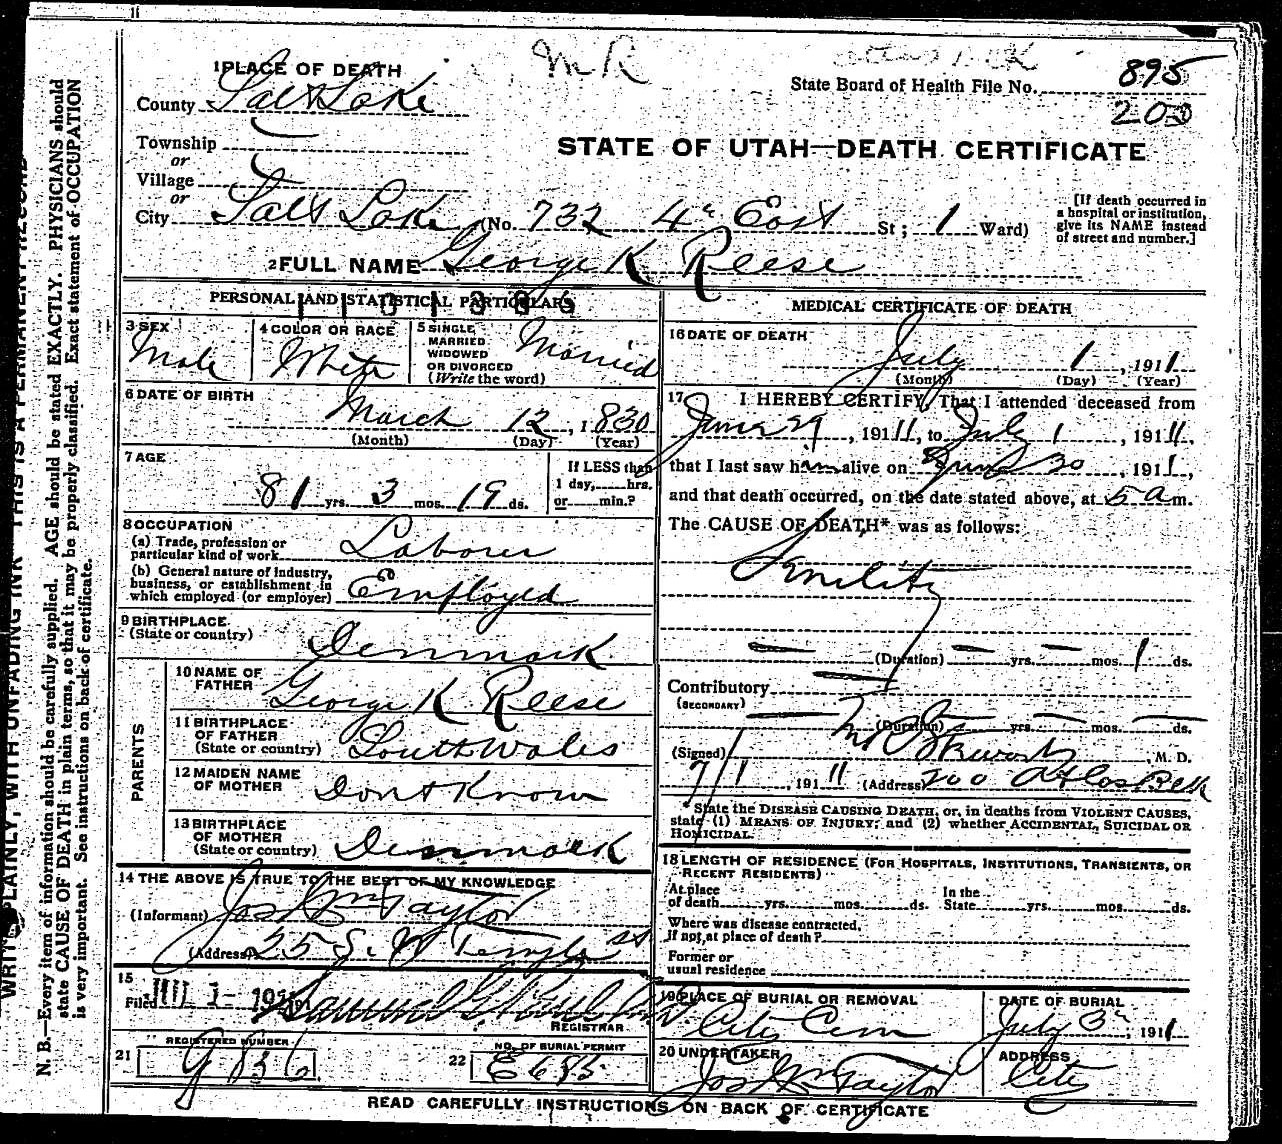 M R
State Board of Health File No. 895
200
1 PLACE OF DEATH
County Salt Lake
Township
or
Village
or
City Salt Lake (No. 732 4th East St; 1 Ward)
STATE OF UTAH—DEATH CERTIFICATE
[If death occurred in a hospital or institution, give its NAME instead of street and number.]
2 FULL NAME George K Reese
PERSONAL AND STATISTICAL PARTICULARS
3 SEX Male
4 COLOR OR RACE White
5 SINGLE MARRIED WIDOWED OR DIVORCED (Write the word) Married
6 DATE OF BIRTH
March 12, 1830
(Month) (Day) (Year)
7 AGE
81 yrs. 3 mos. 19 ds.
If LESS than 1 day, hrs. or min.?
8 OCCUPATION
(a) Trade, profession or particular kind of work Laborer
(b) General nature of industry, business, or establishment in which employed (or employer) Employed
9 BIRTHPLACE
(State or country) Denmark
PARENTS
10 NAME OF FATHER George K Reese
11 BIRTHPLACE OF FATHER (State or country) South Wales
12 MAIDEN NAME OF MOTHER Dont Know
13 BIRTHPLACE OF MOTHER (State or country) Denmark
14 THE ABOVE IS TRUE TO THE BEST OF MY KNOWLEDGE
(Informant) Jos Wm Taylor
(Address) 25 S. W Temple St
15
Filed JUL 1- 1911
REGISTRAR
21 REGISTERED NUMBER 9836
22 NO. OF BURIAL PERMIT
MEDICAL CERTIFICATE OF DEATH
16 DATE OF DEATH
July 1, 1911
(Month) (Day) (Year)
17 I HEREBY CERTIFY, That I attended deceased from
June 29, 1911, to July 1, 1911,
that I last saw him alive on June 30, 1911,
and that death occurred, on the date stated above, at 5 a m.
The CAUSE OF DEATH* was as follows:
Senility
(Duration) yrs. mos. 1 ds.
Contributory
(SECONDARY)
(Duration) yrs. mos. ds.
(Signed) M. D.
7/1, 1911 (Address) 200 Atlas Blk
*State the DISEASE CAUSING DEATH, or, in deaths from VIOLENT CAUSES, state (1) MEANS OF INJURY; and (2) whether ACCIDENTAL, SUICIDAL OR HOMICIDAL.
18 LENGTH OF RESIDENCE (FOR HOSPITALS, INSTITUTIONS, TRANSIENTS, OR RECENT RESIDENTS)
At place of death yrs. mos. ds. In the State yrs. mos. ds.
Where was disease contracted, if not at place of death?
Former or usual residence
19 PLACE OF BURIAL OR REMOVAL
City Cem
DATE OF BURIAL
July 3, 1911
20 UNDERTAKER
Jos Wm Taylor
ADDRESS
City
READ CAREFULLY INSTRUCTIONS ON BACK OF CERTIFICATE
WRITE PLAINLY, WITH UNFADING INK THIS IS A PERMANENT RECORD
N. B.—Every item of information should be carefully supplied. AGE should be stated EXACTLY. PHYSICIANS should
state CAUSE OF DEATH in plain terms, so that it may be properly classified. Exact statement of OCCUPATION
is very important. See instructions on back of certificate.